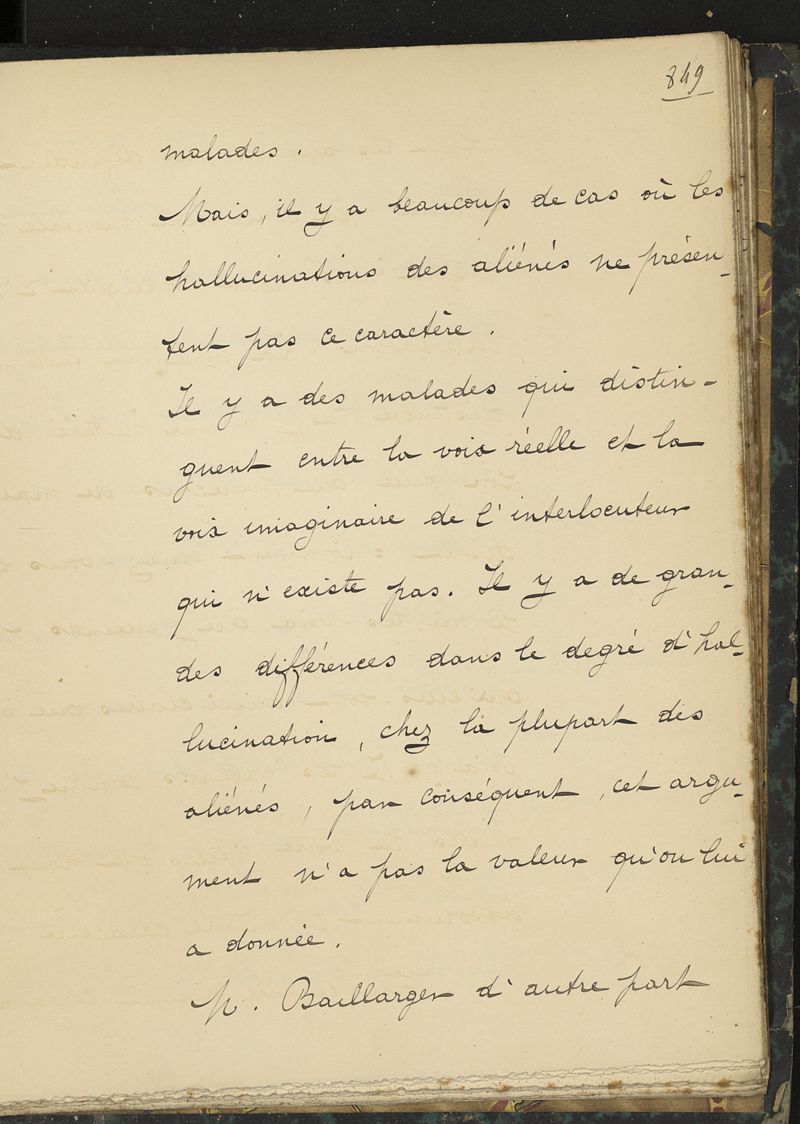 849
malades.
Mais, il y a beaucoup de cas où les
hallucinations des aliénés ne présen-
tent pas ce caractère.
Il y a des malades qui distin-
guent entre la voix réelle et la
voix imaginaire de l'interlocuteur
qui n'existe pas. Il y a de gran-
des différences dans le degré d'hal-
lucination, chez la plupart des
aliénés, par conséquent, cet argu-
ment n'a pas la valeur qu'on lui
a donnée.
M. Baillarger d'autre part